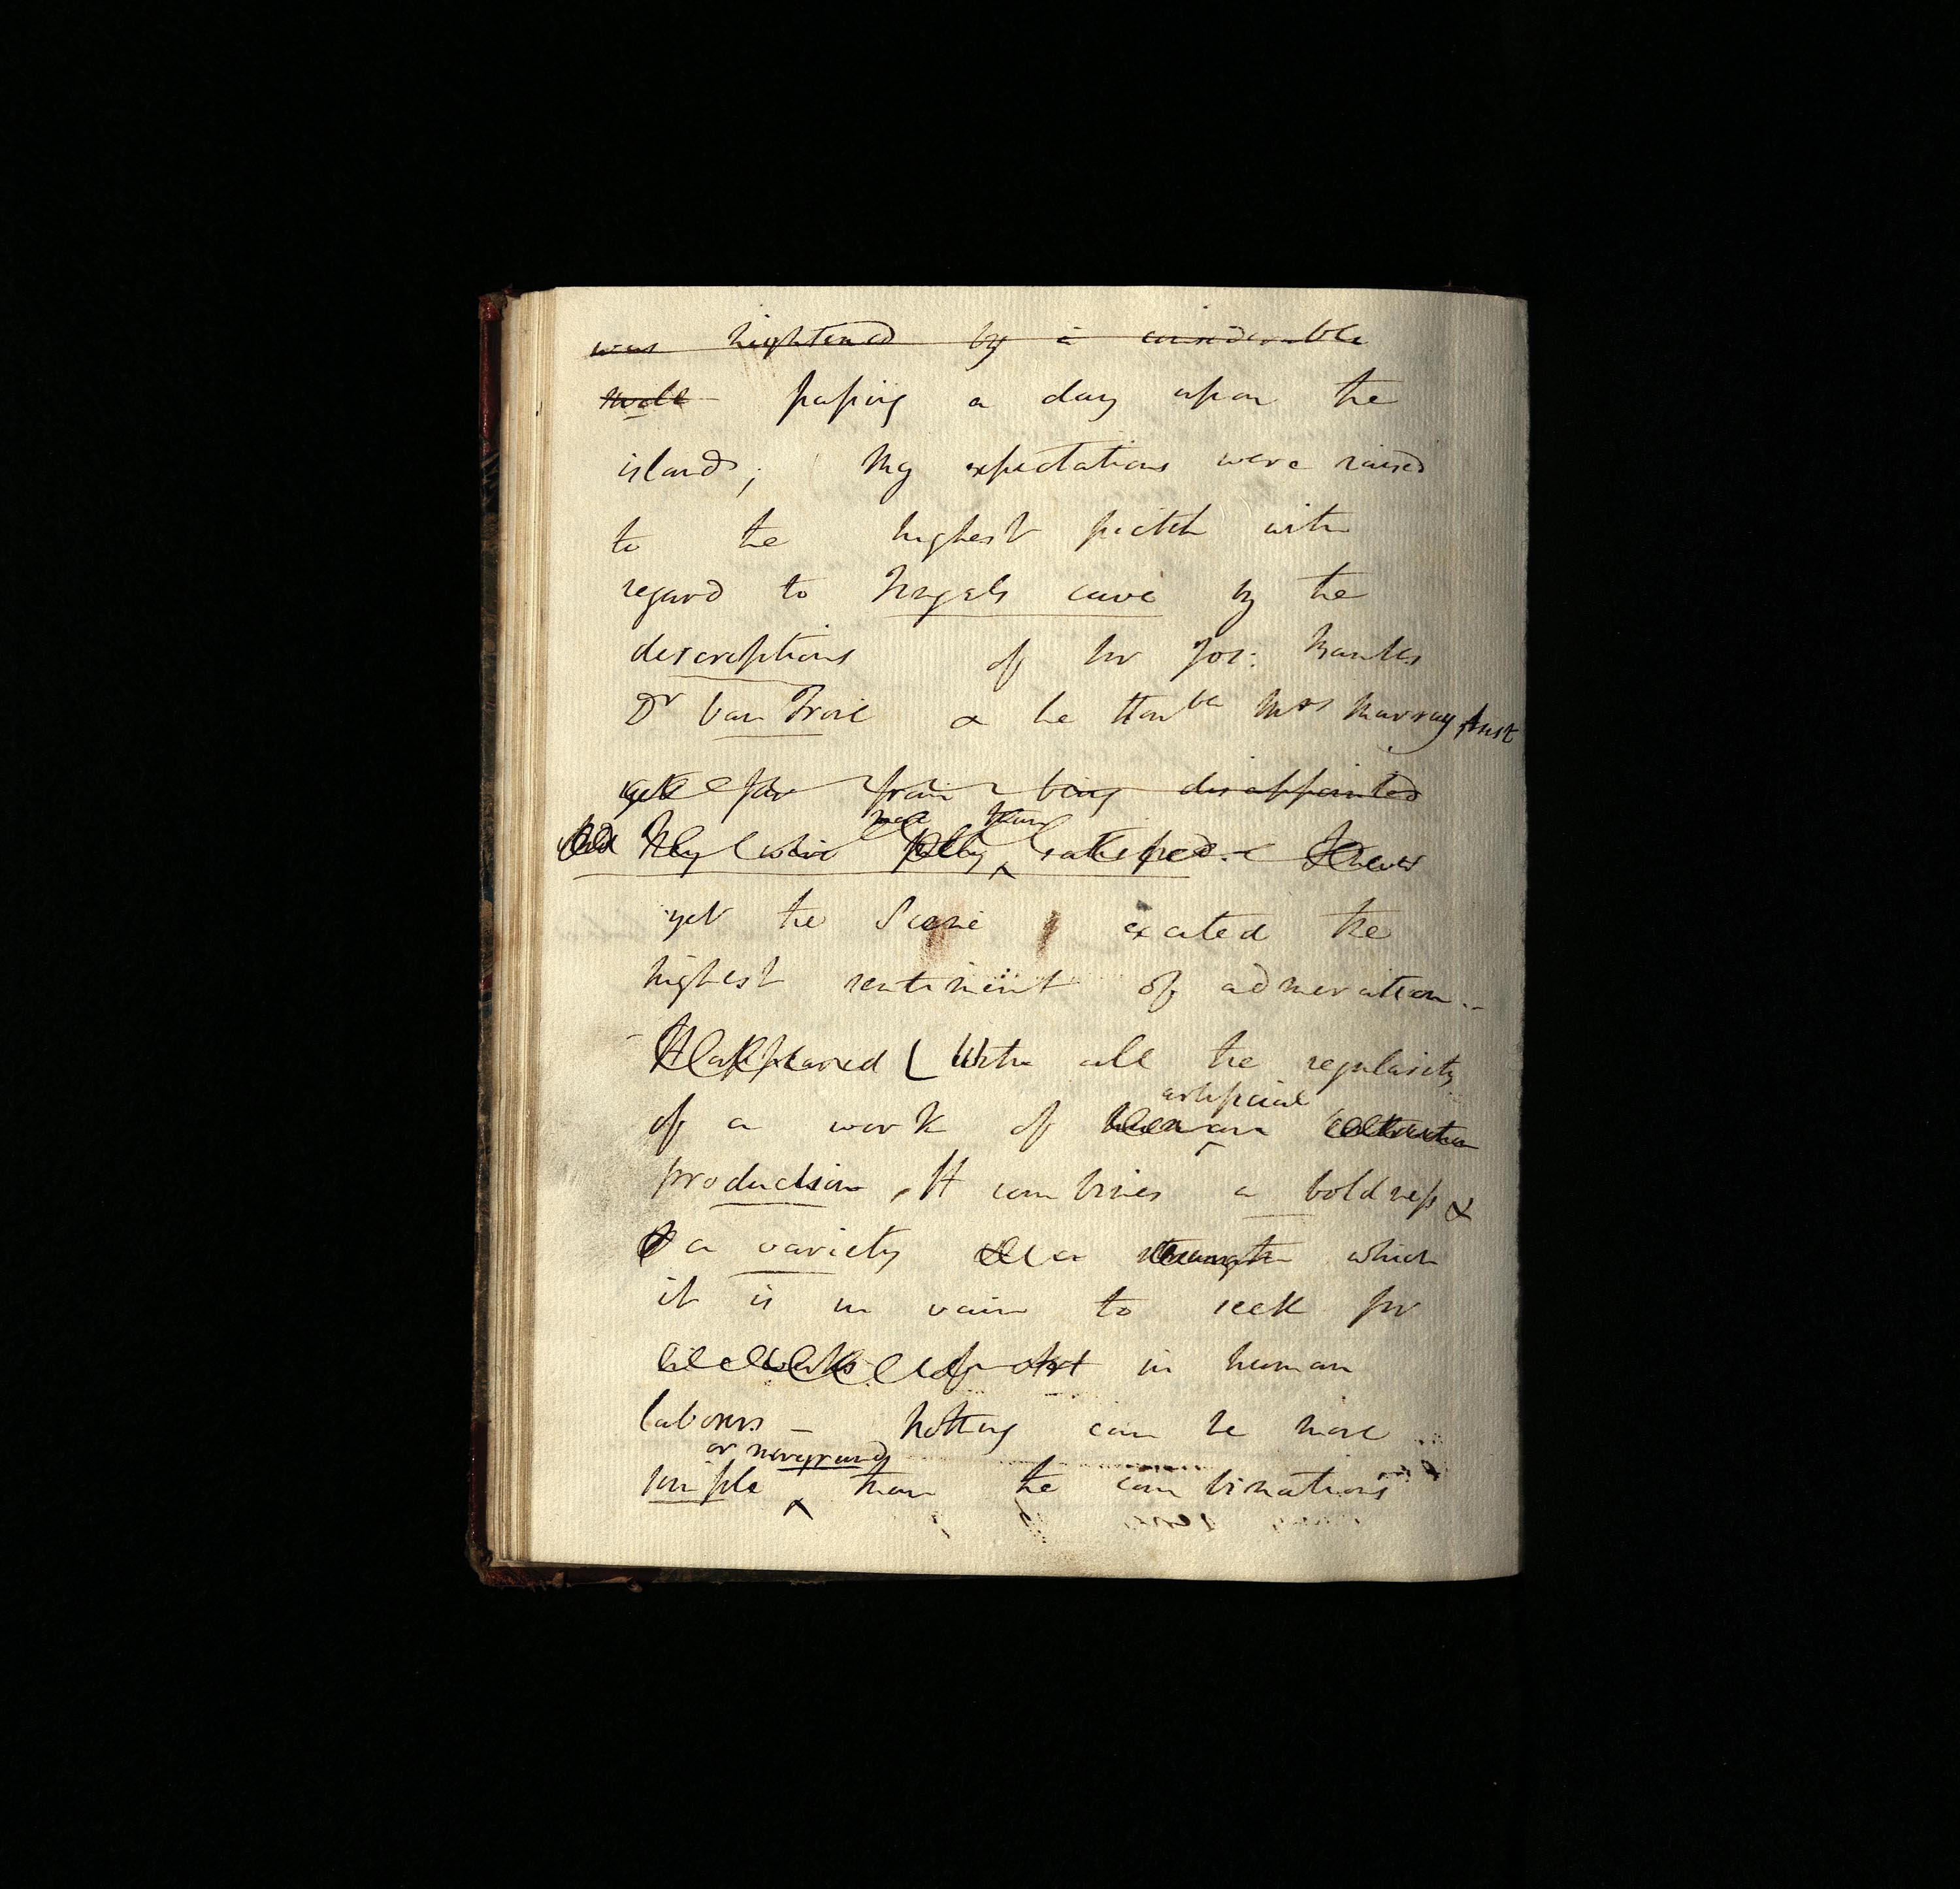 was hightened by a considerable
swell passing a day upon the
island; My expectations were raised
to the highest pictch with
regard to Fingals cave by the
descreptions of Sir Jos: Banks
Dr Van Troil & the Honble Mrs Murray Aust
far from being disappointed
more than
They were fully satisfied. -
yet the Scene excited the
highest sentiment of admeration. -
It appeared With all the regularity
artificial
of a work of human
production, It combines a boldness &
& a variety & a strength which
it is in vain to seek for
in the works of art in human
labours - Nothing can be more
or more grand
simple than the combinations